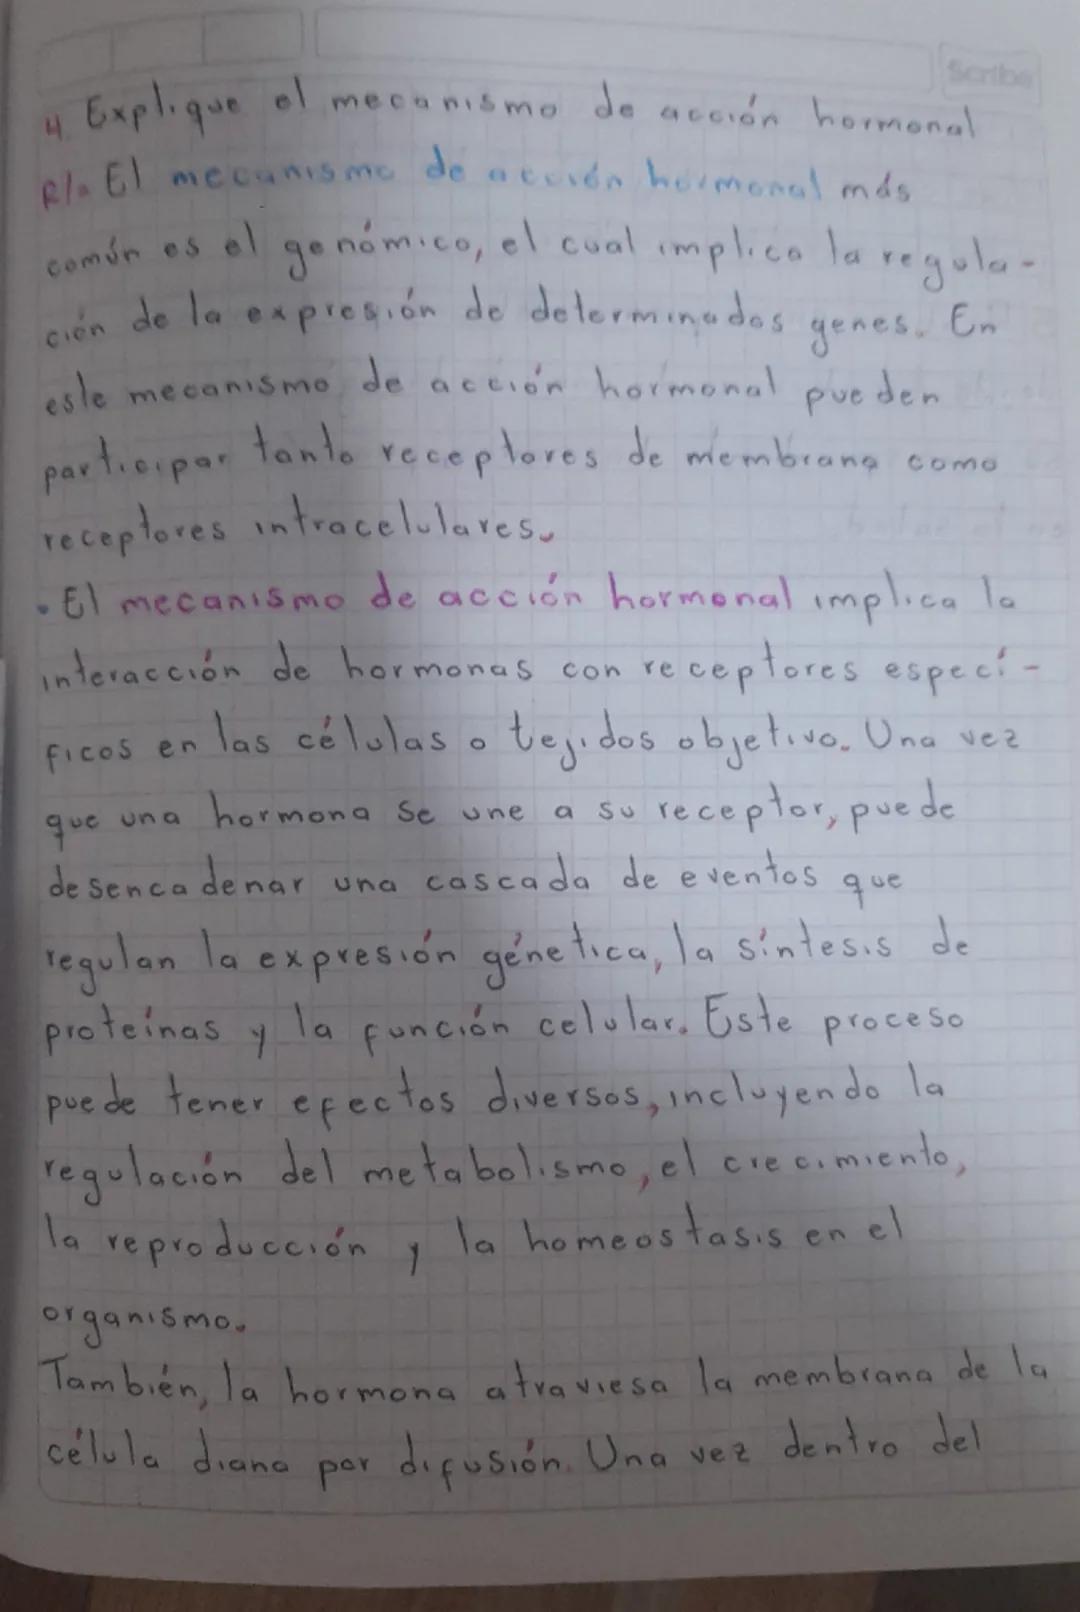 Scribe
4. Explique el mecanismo de acción hormonal
R/a El mecanismo de acción hormonal más
común es el genómico, el cual implica la regula-
ción de la expresión de determinados genes. En
este mecanismo de acción hormonal pueden
participar tanto receptores de membrana como
receptores intracelulares.
• El mecanismo de acción hormonal implica la
interacción de hormonas con receptores especí-
ficos en las células o tejidos objetivo. Una vez
que una hormona se une a su receptor, puede
desencadenar una cascada de eventos que
regulan la expresión génetica, la síntesis de
proteínas y la función celular. Este proceso
puede tener efectos diversos, incluyendo la
regulación del metabolismo, el crecimiento,
la reproducción y la homeostasis en el
organismo.
También, la hormona atraviesa la membrana de la
célula diana por difusión. Una vez dentro del